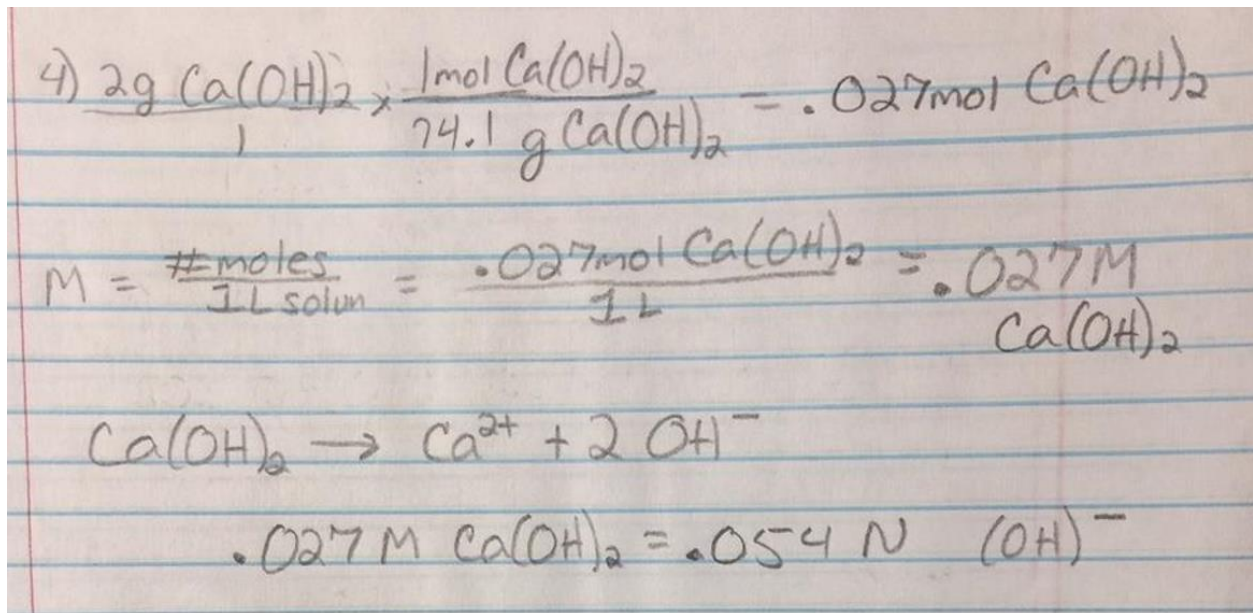 4) 2g Ca(OH)2 / 1 × 1mol Ca(OH)2 / 74.1 g Ca(OH)2 = .027mol Ca(OH)2
M = #moles / 1L solun = .027mol Ca(OH)2 / 1L = .027M
Ca(OH)2
Ca(OH)2 → Ca²⁺ + 2 OH⁻
.027M Ca(OH)2 = .054 N (OH)⁻